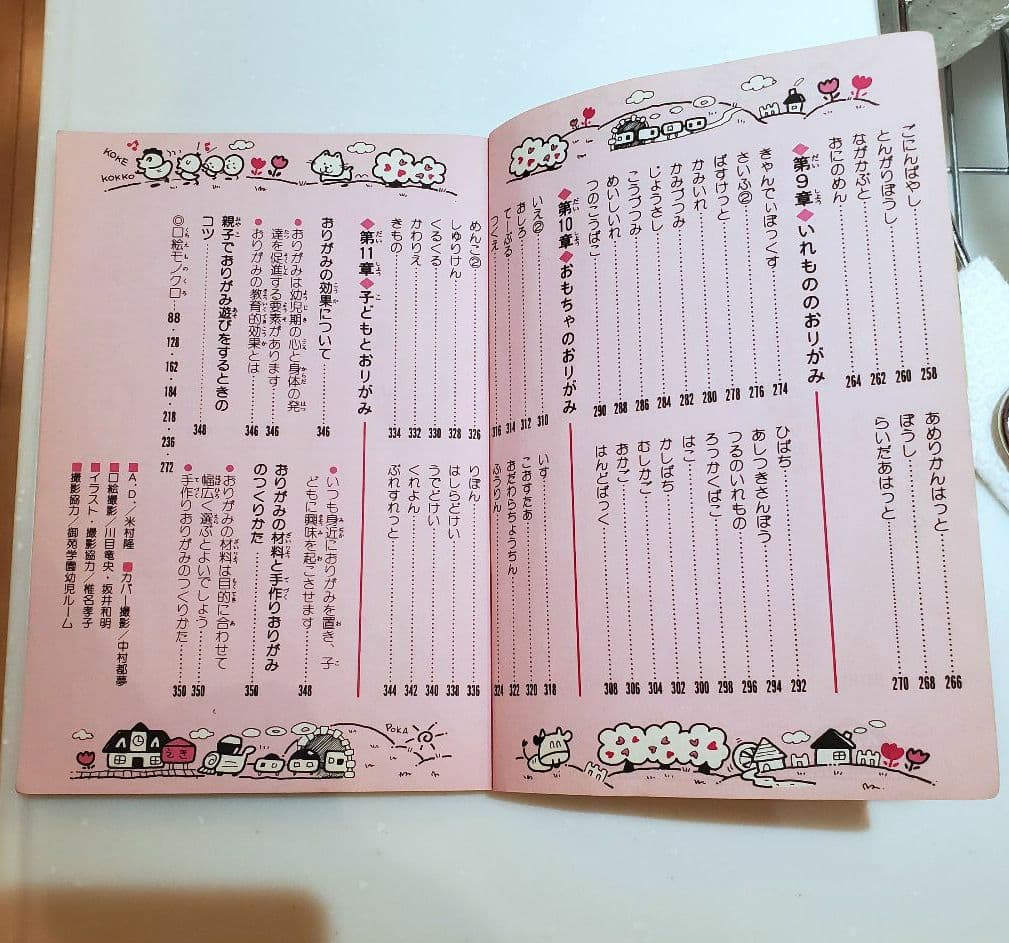 ごにんばやし……258
とんがりぼうし……260
ながかぶと……262
おにのめん……264
あめりかんはっと……266
ぼうし……268
らいだあはっと……270
◆第9章◆いれもののおりがみ
きゃんでぃぼっくす……274
さいふ②……276
ばすけっと……278
かみいれ……280
かみづつみ……282
じょうさし……284
こうづつみ……286
めいしいれ……288
つのこうばこ……290
ひばち……292
あしつきさんぼう……294
つるのいれもの……296
ろっかくばこ……298
はこ……300
かしばち……302
むしかご……304
おかご……306
はんどばっぐ……308
◆第10章◆おもちゃのおりがみ
いえ②……310
おしろ……312
てーぶる……314
つくえ……316
いす……318
こおすたあ……320
おだわらちょうちん……322
ふうりん……324
KOKE
KOKKO
めんこ②……326
しゅりけん……328
くるくる……330
かわりえ……332
きもの……334
りぼん……336
はしらどけい……338
うでどけい……340
くれよん……342
ぶれすれっと……344
◆第11章◆子どもとおりがみ
おりがみの効果について……346
●おりがみは幼児期の心と身体の発
達を促進する要素があります……346
●おりがみの教育的効果とは……346
親子でおりがみ遊びをするときの
コツ……348
●いつも身近におりがみを置き、子
どもに興味を起こさせます……348
おりがみの材料と手作りおりがみ
のつくりかた……350
●おりがみの材料は目的に合わせて
幅広く選ぶとよいでしょう……350
●手作りおりがみのつくりかた……350
◎口絵モノクロ…88・128・162・184・218・236・272
■A.D.／米村隆 ■カバー撮影／中村都夢
■口絵撮影／川目竜央・坂井和明
■イラスト・撮影協力／椎名孝子
■撮影協力／御苑学園幼児ルーム
えき
POKA